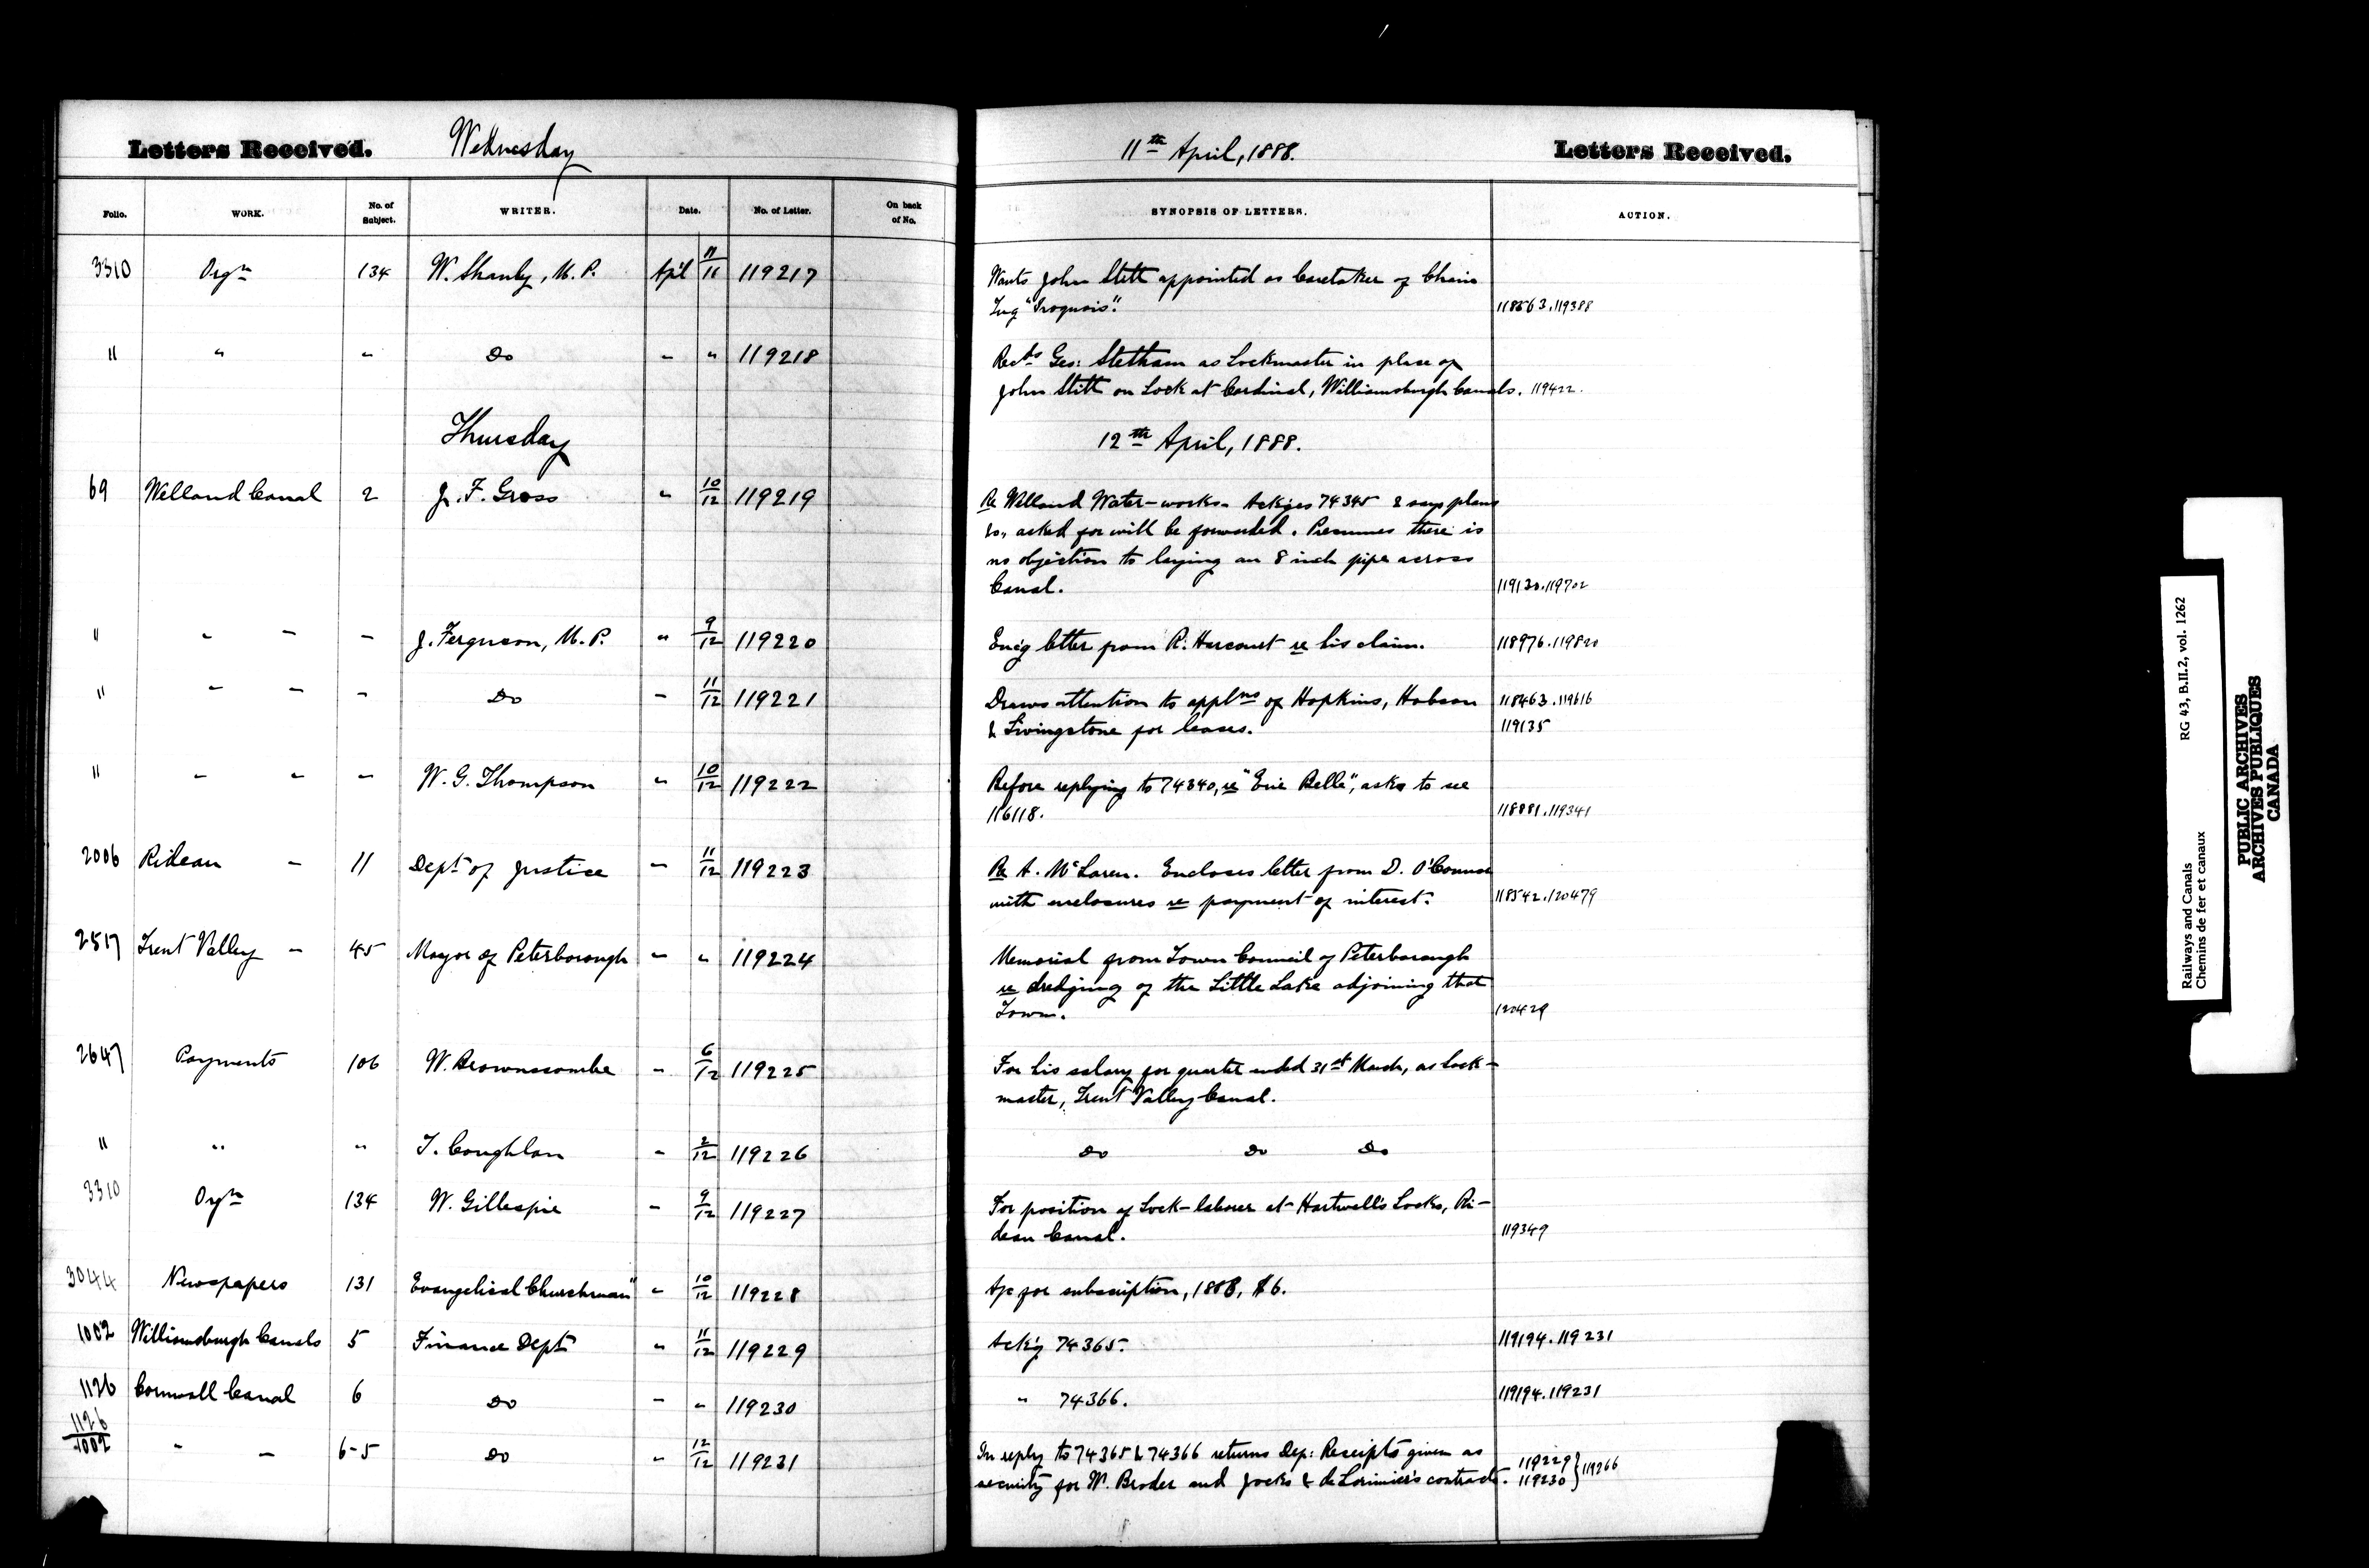 Letters Received. Wednesday 11th April, 1888. Letters Received.
Folio. WORK. No. of Subject. WRITER. Date. No. of Letter. On back of No. SYNOPSIS OF LETTERS. ACTION.
3310 Orgn 134 W. Shanly, M.P. Apl 11/11 119217 Wants John Stitt appointed as Caretaker of Chain
Tug "Iroquois". 118563.119388
" " " Do " " 119218 Recds Geo: Stetham as Lockmaster in place of
John Stitt on Lock at Cardinal, Williamsburgh Canals. 119422.
Thursday 12th April, 1888.
69 Welland Canal 2 J. F. Gross " 10/12 119219 Re Welland Water-works. Ackges 74345 & says plans
&c., asked for will be forwarded. Presumes there is
no objection to laying an 8 inch pipe across
Canal. 119130.119702
" " " " J. Ferguson, M.P. " 9/12 119220 Encg letter from R. Harcourt re his claim. 118976.119820
" " " " Do " 11/12 119221 Draws attention to applns of Hopkins, Hobson 118463.119616
& Livingstone for leases. 119135
" " " " W. G. Thompson " 10/12 119222 Before replying to 74340, re "Erie Belle", asks to see
116118. 118881.119341
2006 Rideau " 11 Dept of Justice " 11/12 119223 Re A. McLaren. Encloses letter from D. O'Connor
with enclosures re payment of interest. 118542.120479
2517 Trent Valley " 45 Mayor of Peterborough " " 119224 Memorial from Town Council of Peterborough
re dredging of the Little Lake adjoining that
Town. 120429
2647 Payments 106 W. Brownscombe " 6/12 119225 For his salary for quarter ended 31st March, as Lock-
master, Trent Valley Canal.
" " " T. Coughlan " 2/12 119226 Do Do Do
3310 Orgn 134 W. Gillespie " 9/12 119227 For position of Lock-laborer at Hartwell's Locks, Ri-
deau Canal. 119349
3044 Newspapers 131 Evangelical Churchman" " 10/12 119228 A/c for subscription, 1888, $6.
1002 Williamsburgh Canals 5 Finance Dept " 11/12 119229 Ackg 74365. 119194.119231
1126 Cornwall Canal 6 Do " " 119230 " 74366. 119194.119231
1126/1002 " " 6-5 Do " 12/12 119231 In reply to 74365 & 74366 returns Dep: Receipts given as 119229 } 119266
security for W. Broder and Jocks & de Lorimier's contracts. 119230
Railways and Canals RG 43, B.II.2, vol. 1262
Chemins de fer et canaux
PUBLIC ARCHIVES
ARCHIVES PUBLIQUES
CANADA